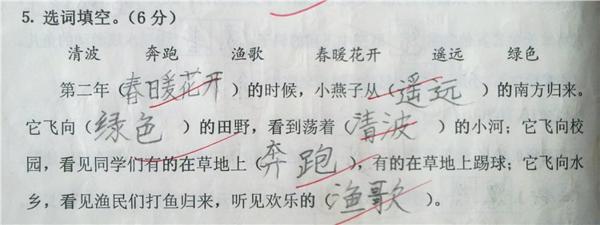 5. 选词填空。(6分)
清波 奔跑 渔歌 春暖花开 遥远 绿色
第二年(春暖花开)的时候,小燕子从(遥远)的南方归来。
它飞向(绿色)的田野,看到荡着(清波)的小河;它飞向校
园,看见同学们有的在草地上(奔跑),有的在草地上踢球;它飞向水
乡,看见渔民们打鱼归来,听见欢乐的(渔歌)。